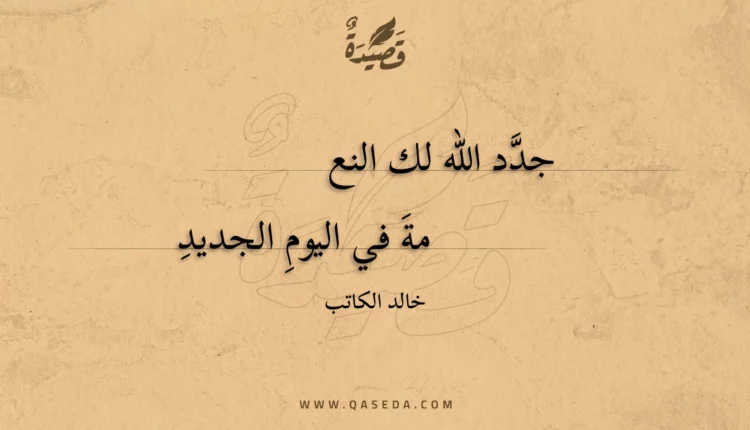 قَصِيْدَةٌ
جدَّد الله لك النع
مةَ في اليومِ الجديدِ
خالد الكاتب
WWW.QASEDA.COM